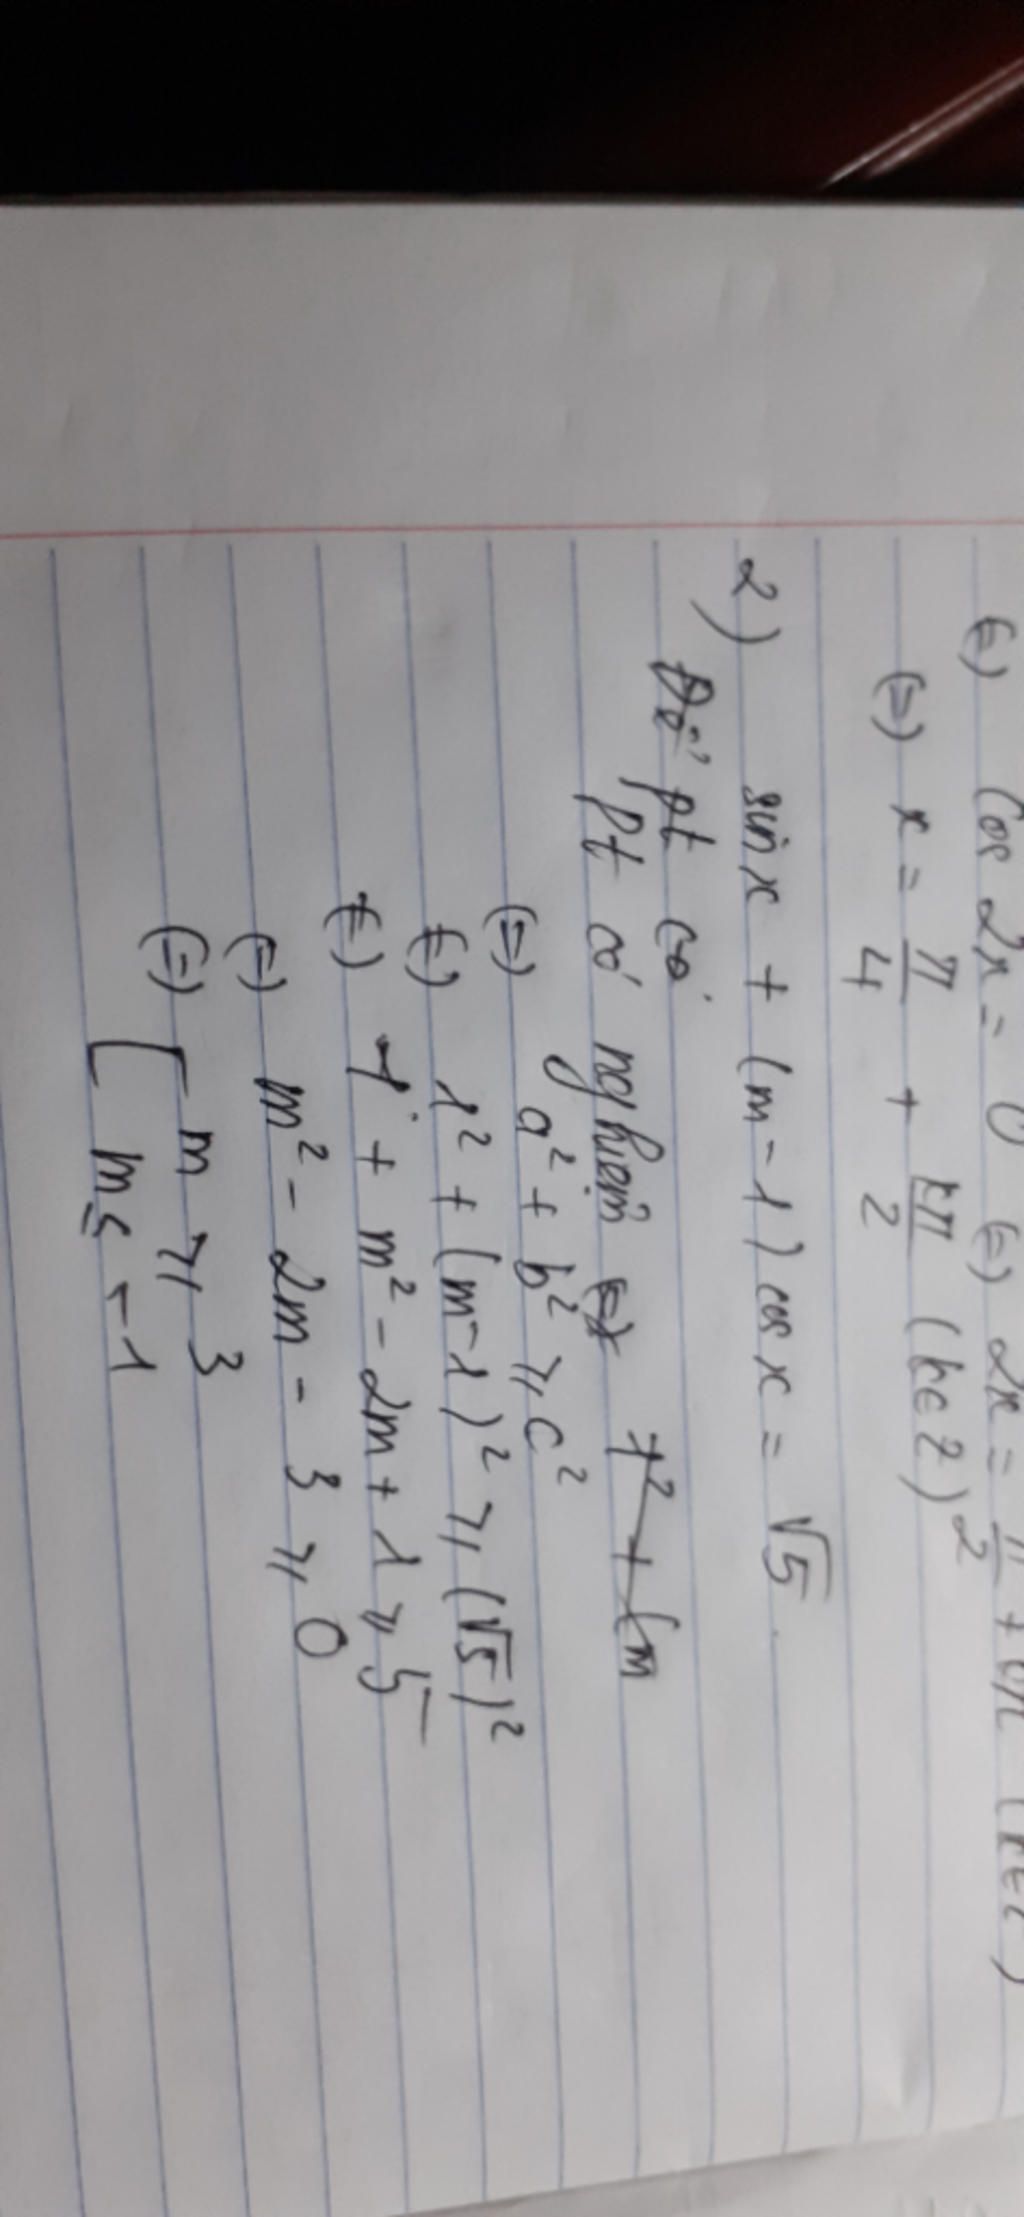 (=) cos 2x = 0 (=) 2x = π/2 + kπ (k∈Z)
(=) x = π/4 + kπ/2 (k∈Z)
2) sin x + (m-1) cos x = √5.
Để pt có
pt có nghiệm (=) 1² + (m
(=) a² + b² ⩾ c²
(=) 1² + (m-1)² ⩾ (√5)²
(=) 1 + m² - 2m + 1 ⩾ 5
(=) m² - 2m - 3 ⩾ 0
(=) [ m ⩾ 3
m ≤ -1